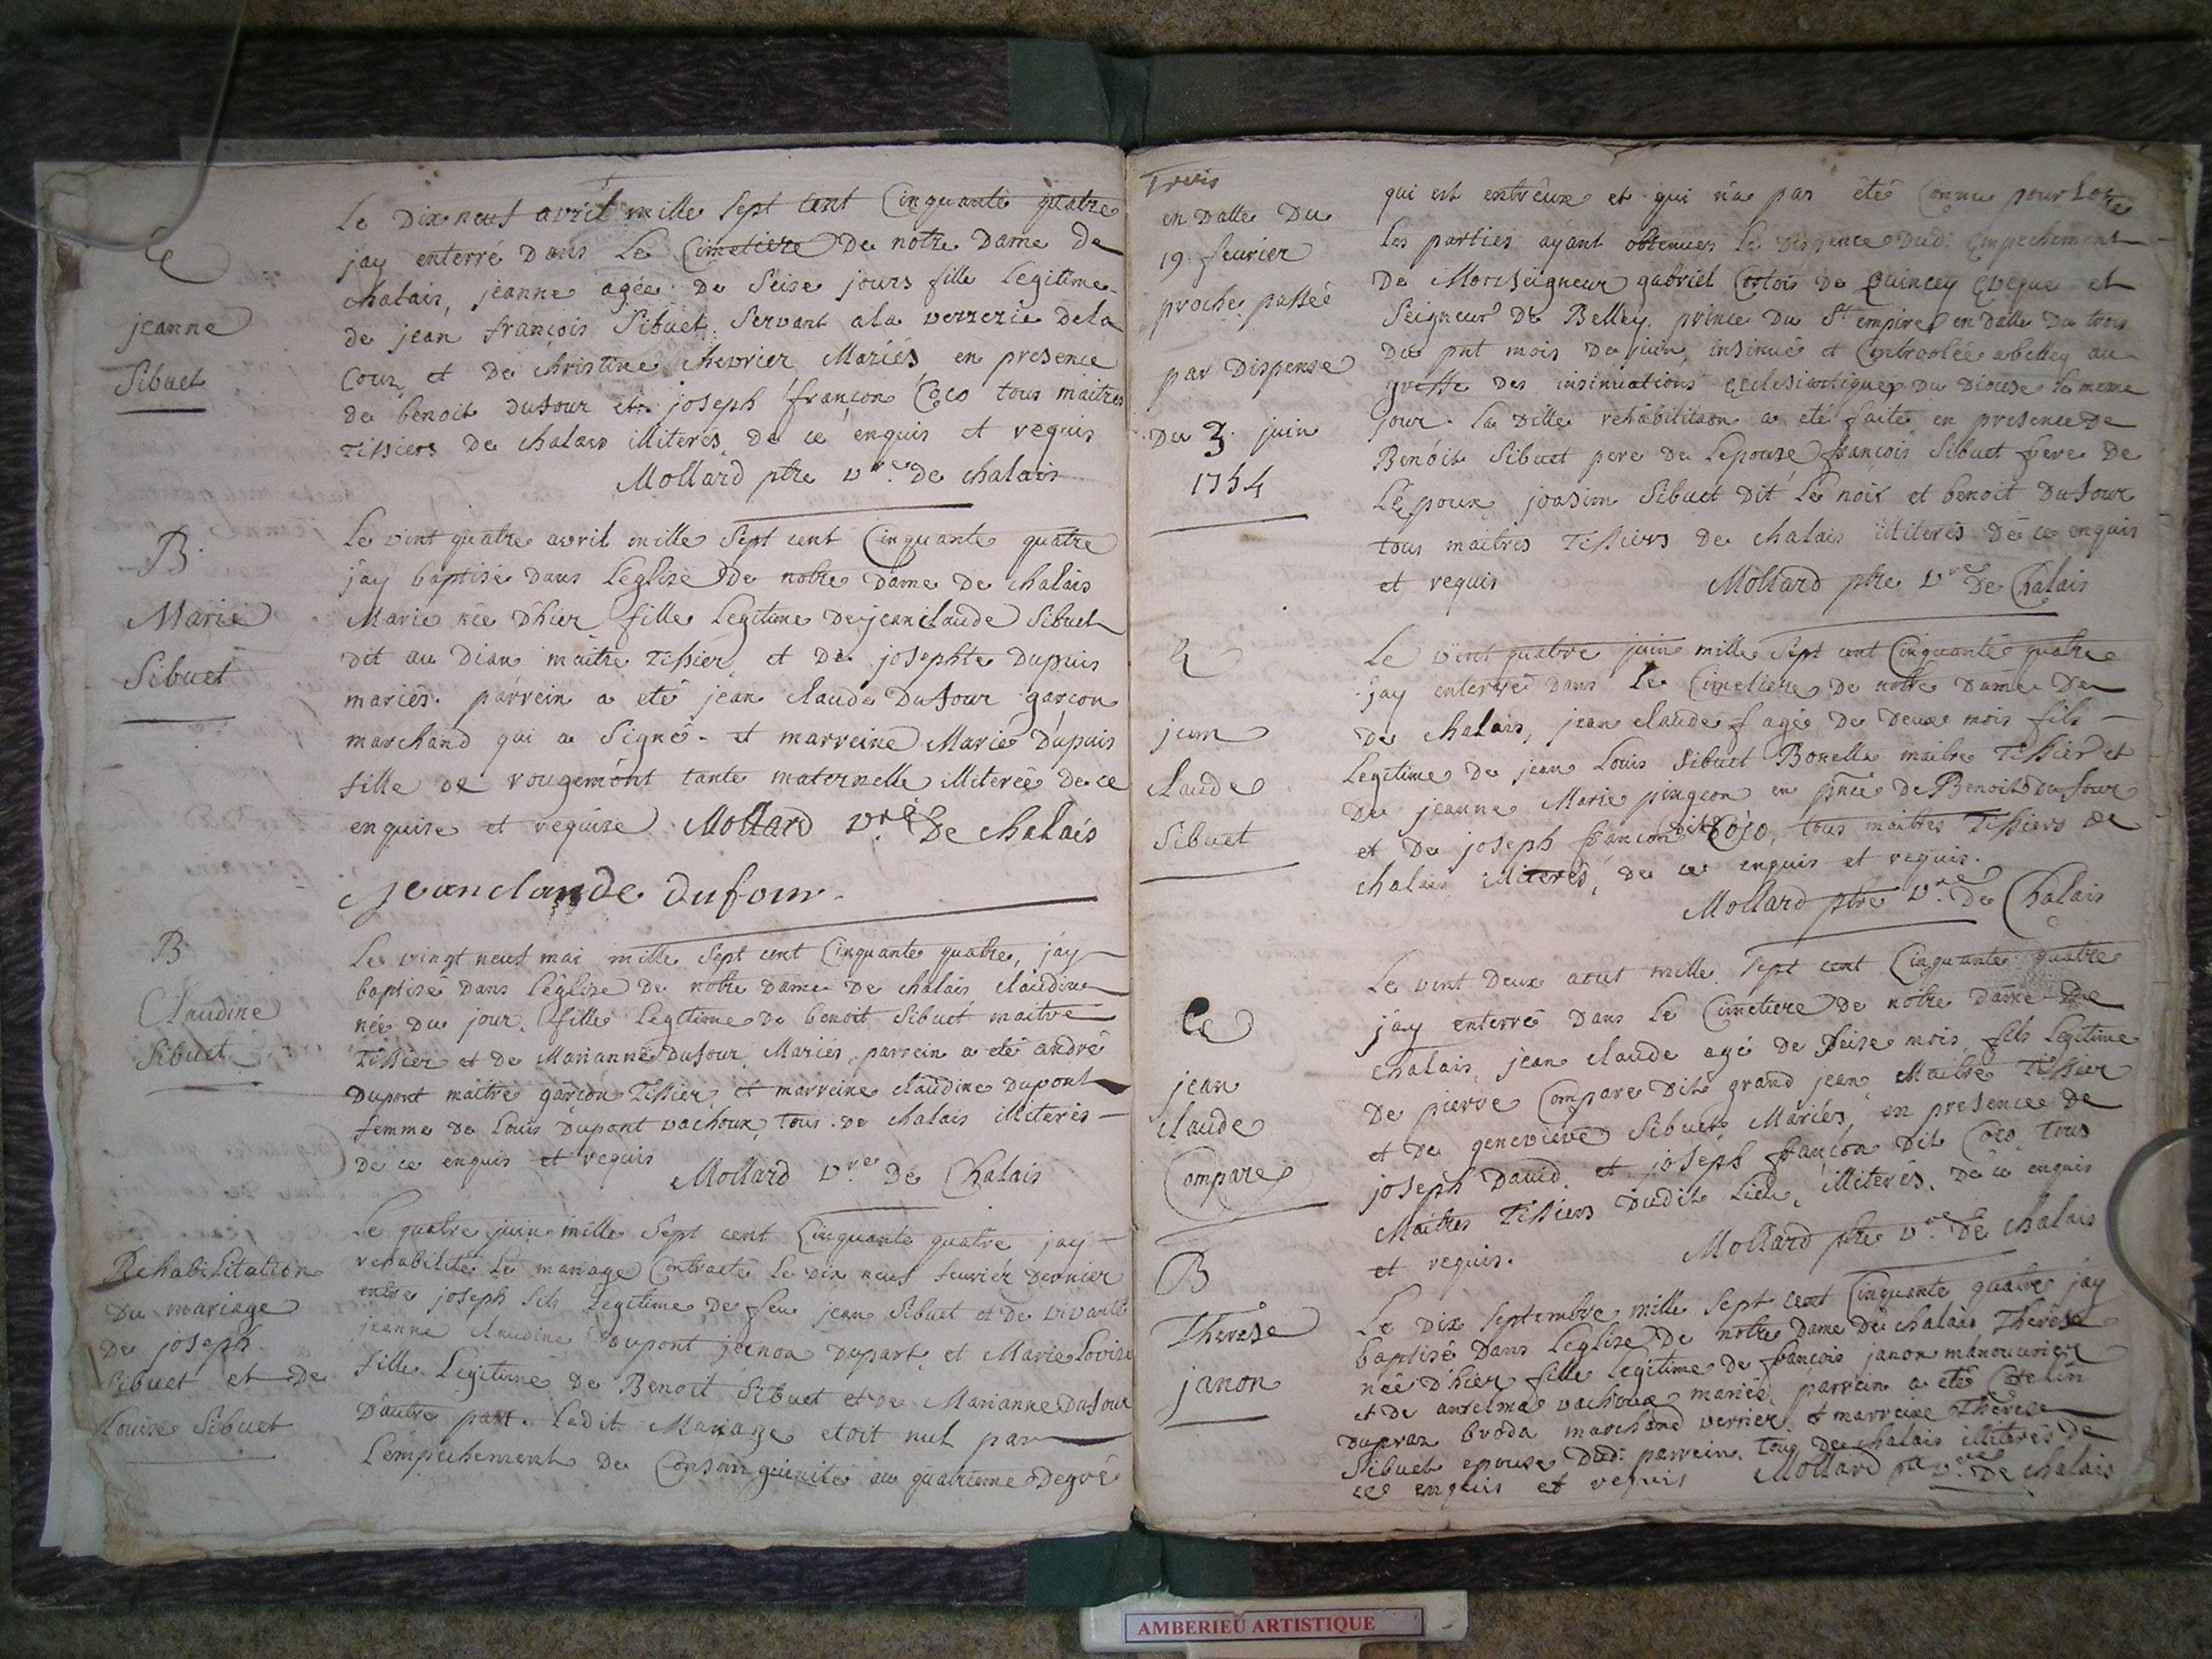 E
jeanne
Sibuet
Le Dix neuf avril mille sept cent Cinquante quatre
jay enterré dans Le Cimetiere de notre Dame de
chalais, jeanne agée de Seise jours fille Legitime
de jean françois Sibuet Servant ala verrerie dela
Cour et de christine chevrier Mariés en presence
de benoit dufour et joseph françon Coco tous maitres
Tissiers de chalais illiterés de ce enquis et requis
Mollard ptre vre. de chalais
B.
Marie
Sibuet
Le vint quatre avril mille sept cent Cinquante quatre
j'ay baptisé dans L'eglise de notre dame de chalais
Marie née d'hier fille Legitime de jean claude Sibuet
dit au dian maitre Tissier et de josephte dupuis
mariés. parrein a eté jean claude Dufour garçon
marchand qui a Signé. et marreine Marie Dupuis
fille de rougemont tante maternelle illiterée de ce
enquise et requise Mollard vre. De chalais
jeanclaude dufour.
B
Claudine
Sibuet
Le vingt neuf mai mille sept cent Cinquante quatre, jay
baptisé dans l'église de notre dame de chalais claudine
née du jour, fille Legitime de benoit Sibuet maitre
Tissier et de Marianne Dufour Mariés, parrein a eté andré
Dupont maitre garçon Tissier, et marreine claudine Dupont
femme de Louis Dupont vachoux, tous de chalais illiterés
de ce enquis et requis Mollard vre. De Chalais
Rehabilitation
Du mariage
De joseph
Sibuet et de
Louise Sibuet
Le quatre juin mille sept cent Cinquante quatre jay
rehabilité le mariage Contracté le dix neuf fevrier dernier
entre joseph fils Legitime de feu jean Sibuet et de vivante
jeanne claudine Dupont d'une part, et Marie Lovise
fille Legitime de Benoit Sibuet et de Marianne Dufour
D'autre part. Ledit Mariage etoit nul par
L'empechement de Consanguinité au quatrieme Degré
Trois
en Datte Du
19. feurier
proche passée
par Dispense
Du 3. juin
1754
qui est entr'eux et qui n'a pas été Connu pour Lors
Les parties ayant obtenues la dispence dud. Empechement
De Monseigneur gabriel Cortois de Quincey Eveque et
Seigneur De Belley, prince Du St empire en datte du trois
du pnt mois de juin, insinué et Controolée a belley au
greffe des insinuations ecclesiastiques du diocese le meme
jour. la ditte rehabilitaon a eté faite en presence de
Benóit Sibuet pere de Lepouse françois Sibuet frere de
L'epoux, joasim Sibuet dit Le noir et benoit Dufour
tous maitres Tissiers de chalais illiterés de ce enquis
et requis Mollard ptre vre De Chalais
E
jean
claude
Sibuet
Le vint quatre juin mille sept cent Cinquante quatre
jay enterré dans Le Cimetiere de notre dame De
De chalais, jean claude agé de deux mois fils
Legitime de jean Louis Sibuet Bonella maitre Tissier et
De jeanne Marie pingeon en pnce de Benoit Dufour
et de joseph francon dit Coço, tous maitres Tissiers de
chalais illiterés, de ce enquis et requis.
Mollard ptre vre. De Chalais
E
jean
claude
Compare
Le vint deux aout mille Sept cent Cinquante quatre
j'ay enterré dans Le Cimetiere de notre dame De
chalais, jean claude agé de seise mois fils Legitime
De pierre Compare Dit grand jean Maitre Tissier
et de genevieve Sibuet Mariés, en presence de
joseph David, et joseph françon Dit Coço tous
Maitres Tissiers Dudit Lieu, illiterés, de ce enquis
et requis. Mollard ptre vre. De chalais
B
Therese
janon
Le Dix Septembre mille Sept cent Cinquante quatre jay
baptisé dans L'eglise de notre dame de chalais Therese
née D'hier fille Legitime de francois janon manouvrier
et de antelma vachoux mariés, parrein a eté
Dupraz broda marchand verrier, et marreine Therese
Sibuet epouse Dud. parrein, tous de chalais illiterés de
ce enquis et requis Mollard ptre vre. De chalais
AMBERIEU ARTISTIQUE